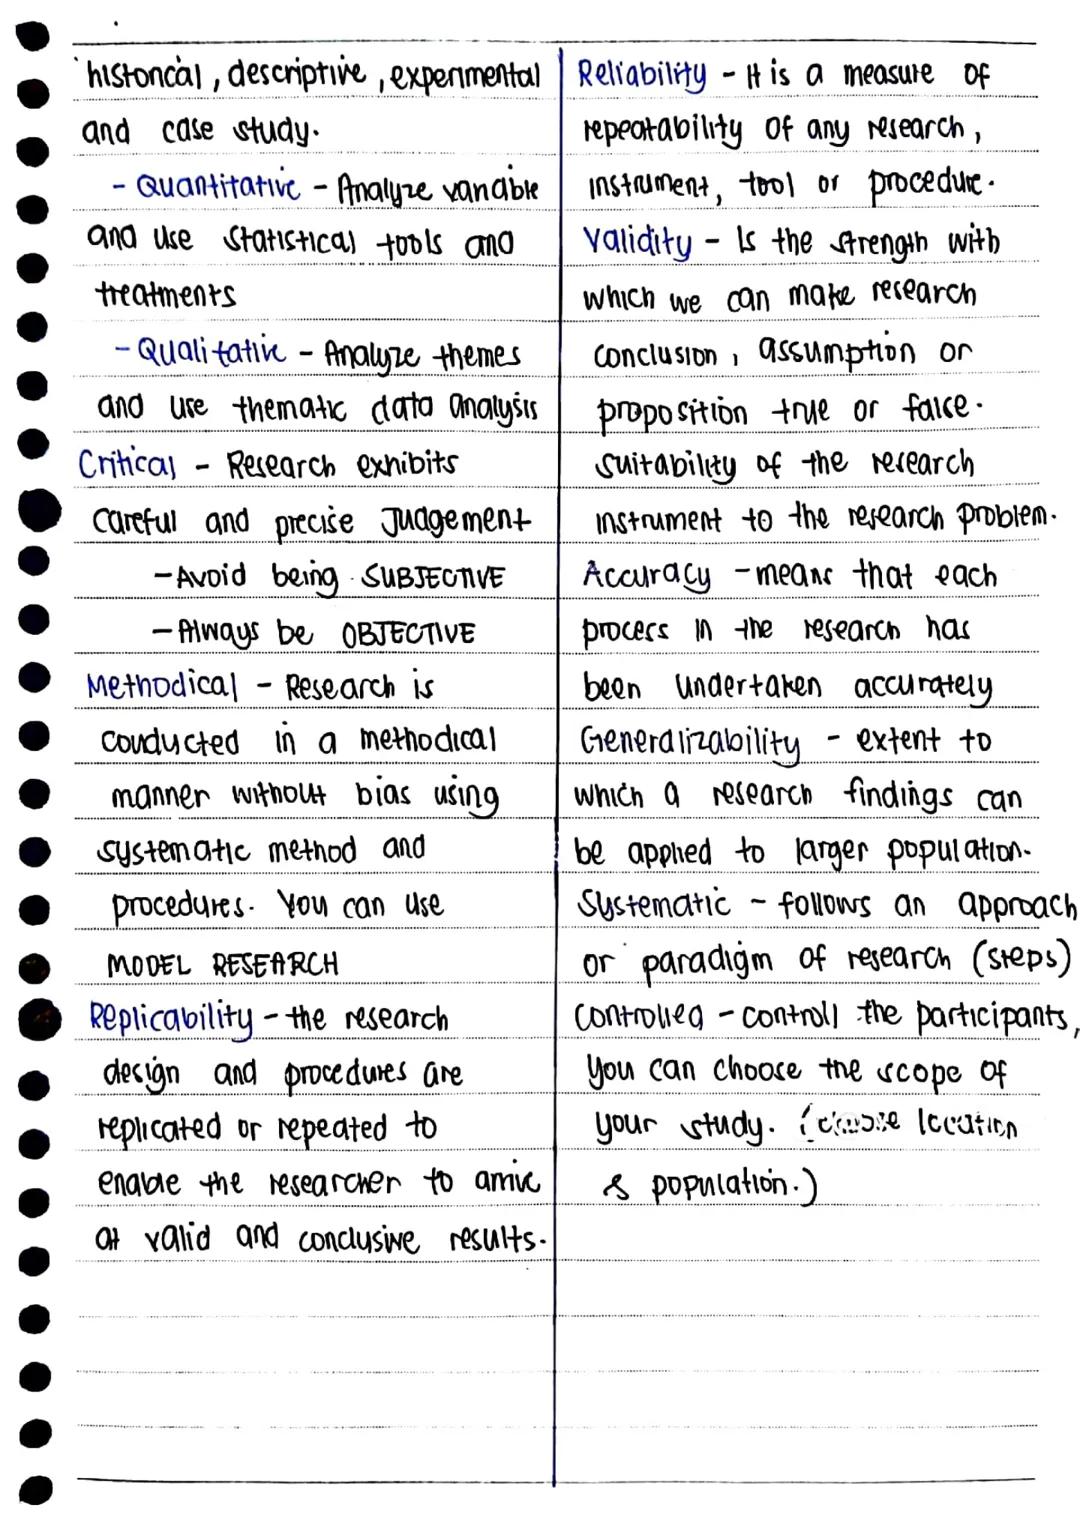 historical, descriptive, experimental
and case study.
- Quantitative - Analyze variable
and use statistical tools and
treatments
- Qualitative - Analyze themes
and use thematic data analysis
Critical - Research exhibits
careful and precise judgement
- Avoid being SUBJECTIVE
- Always be OBJECTIVE
Methodical - Research is
conducted in a methodical
manner without bias using
systematic method and
procedures. You can use
MODEL RESEARCH
Replicability - the research
design and procedures are
replicated or repeated to
enable the researcher to arrive
at valid and conclusive results.
Reliability - It is a measure of
repeatability of any research,
instrument, tool or procedure.
Validity - Is the strength with
which we can make research
conclusion, assumption or
proposition true or false.
suitability of the research
instrument to the research problem.
Accuracy - means that each
process in the research has
been undertaken accurately
Generalizability - extent to
which a research findings can
be applied to larger population.
Systematic - follows an approach
or paradigm of research (steps)
Controlled - controll the participants,
you can choose the scope of
your study. (choose location
& population.)